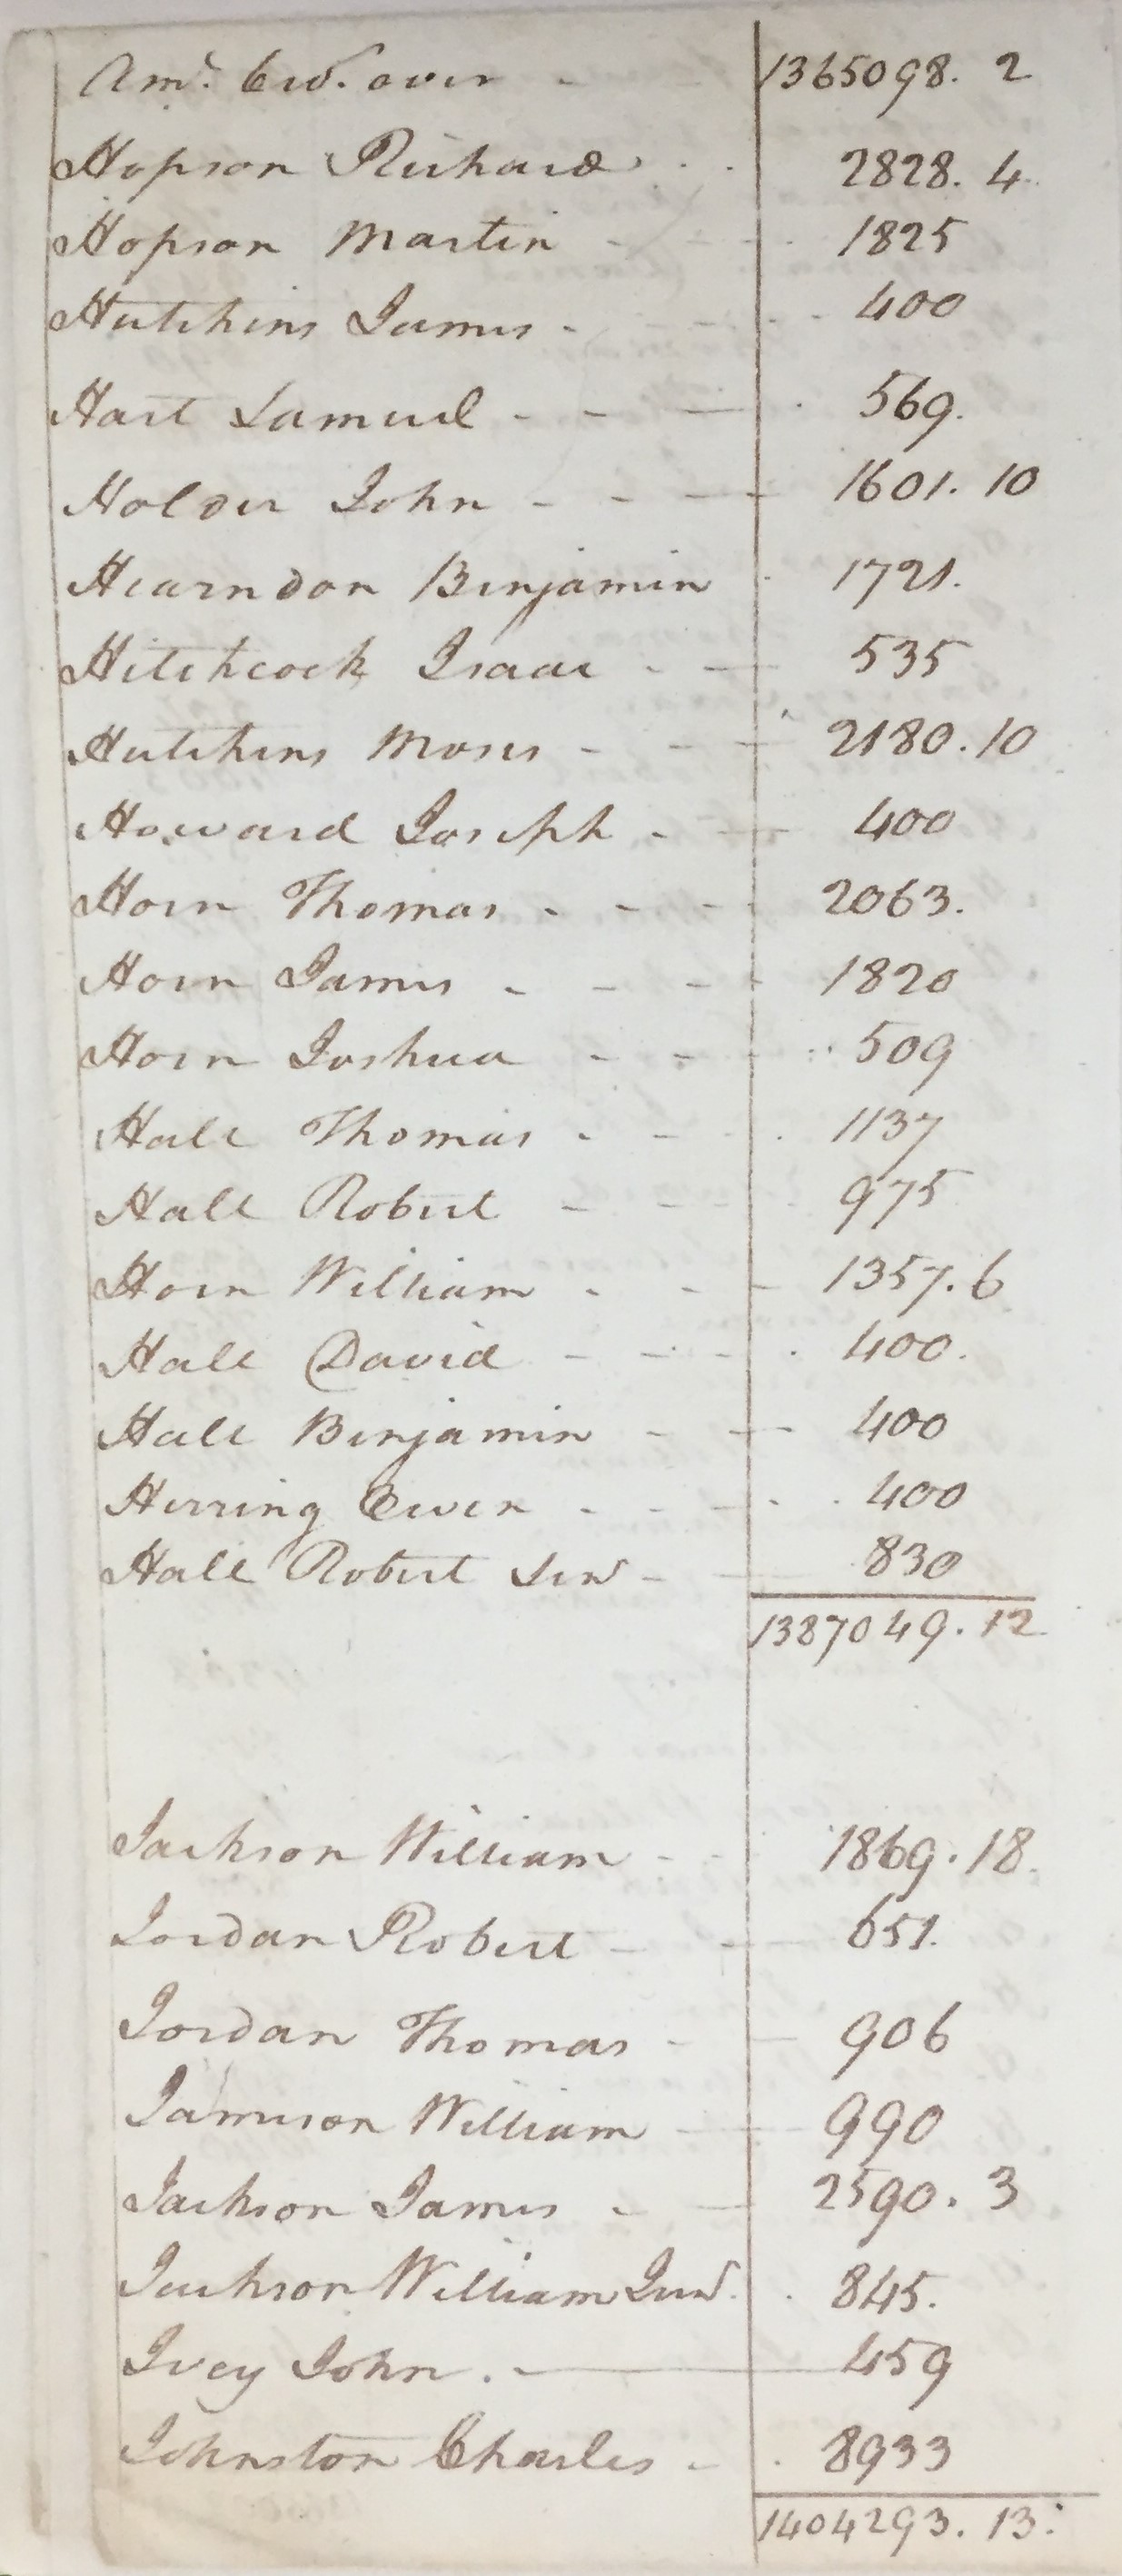 Amt. Crd. over - 1365098. 2
Hopson Richard . . 2828. 4
Hopson Martin - - - 1825
Hutchins James - - - 400
Hart Samuel - - - 569.
Holder John - - - 1601. 10
Hearndon Benjamin 1721.
Hitchcock Isaac - - 535
Hutchins Moses - - - 2180. 10
Howard Joseph - - 400
Horn Thomas - - - 2063.
Horn James - - - 1820
Horn Joshua - - - 509
Hall Thomas - - - 1137
Hall Robert - - - 975
Horn William - - - 1357. 6
Hall David - - - 400.
Hall Benjamin - - 400
Herring Owen - - - 400
Hall Robert Senr - - 830
1387049. 12
Jackson William - - 1869. 18
Jordan Robert - - 651.
Jordan Thomas - - 906
Jameson William - - 990
Jackson James - - 2590. 3
Jackson William Junr. 845.
Ivey John . - 459
Johnston Charles - 8933
1404293. 13.